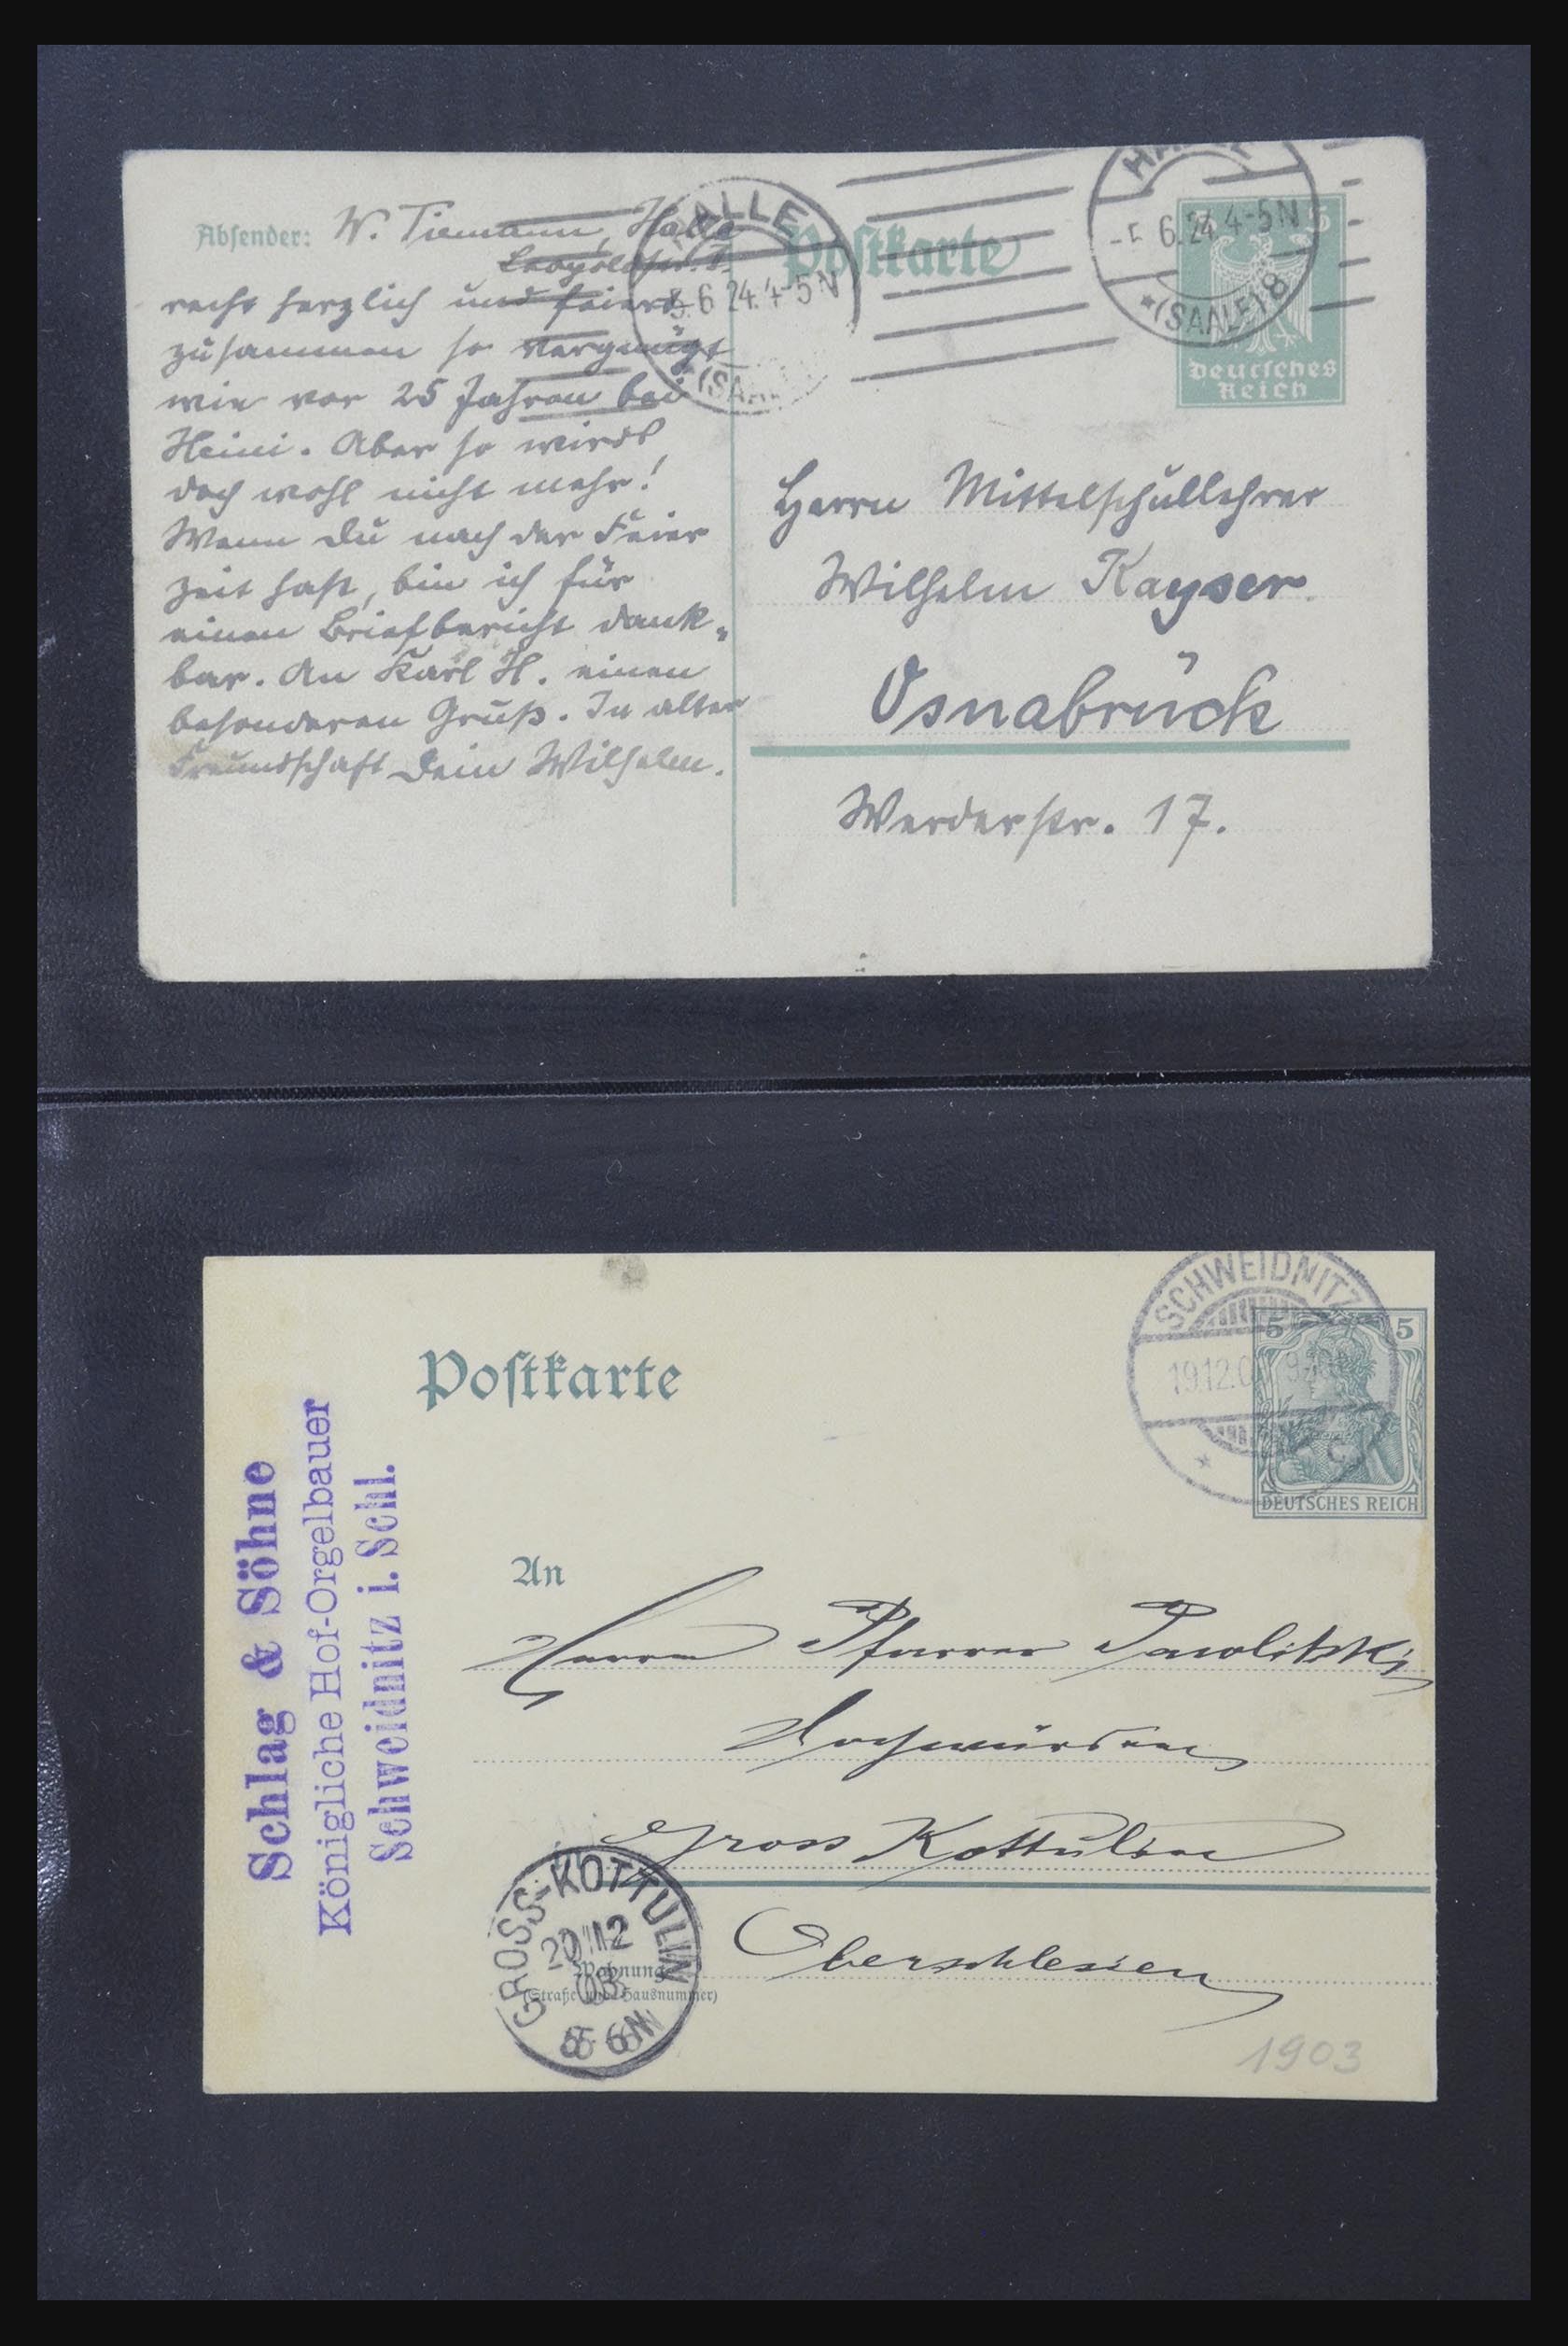 Absender: W. Tiemann, Halle
Leopoldstr.
recht herzlich und feiert
zusammen so vergnügt
wie vor 25 Jahren bei
Heini. Aber so wirds
doch wohl nicht mehr!
Wenn Du nach der Feier
Zeit hast, bin ich für
einen Briefbericht dank-
bar. An Karl H. einen
besonderen Gruß. In alter
Freundschaft Dein Wilhelm.
Postkarte
HALLE
5.6.24.4-5N
(SAALE)
HALLE
-5.6.24.4-5N
*(SAALE)8
5
Deutsches
Reich
Herrn Mittelschullehrer
Wilhelm Kayser.
Osnabrück
Werderstr. 17.
Schlag & Söhne
Königliche Hof-Orgelbauer
Schweidnitz i. Schl.
Postkarte
SCHWEIDNITZ
19.12.0
* c
5 5
DEUTSCHES REICH
An
Herrn Pfarrer Pawlitzki
Hochwürden
Gross Kottulin
Oberschlesien
GROSS-KOTTULIN
20 12
03
5-6N
Wohnung
(Straße und Hausnummer)
1903